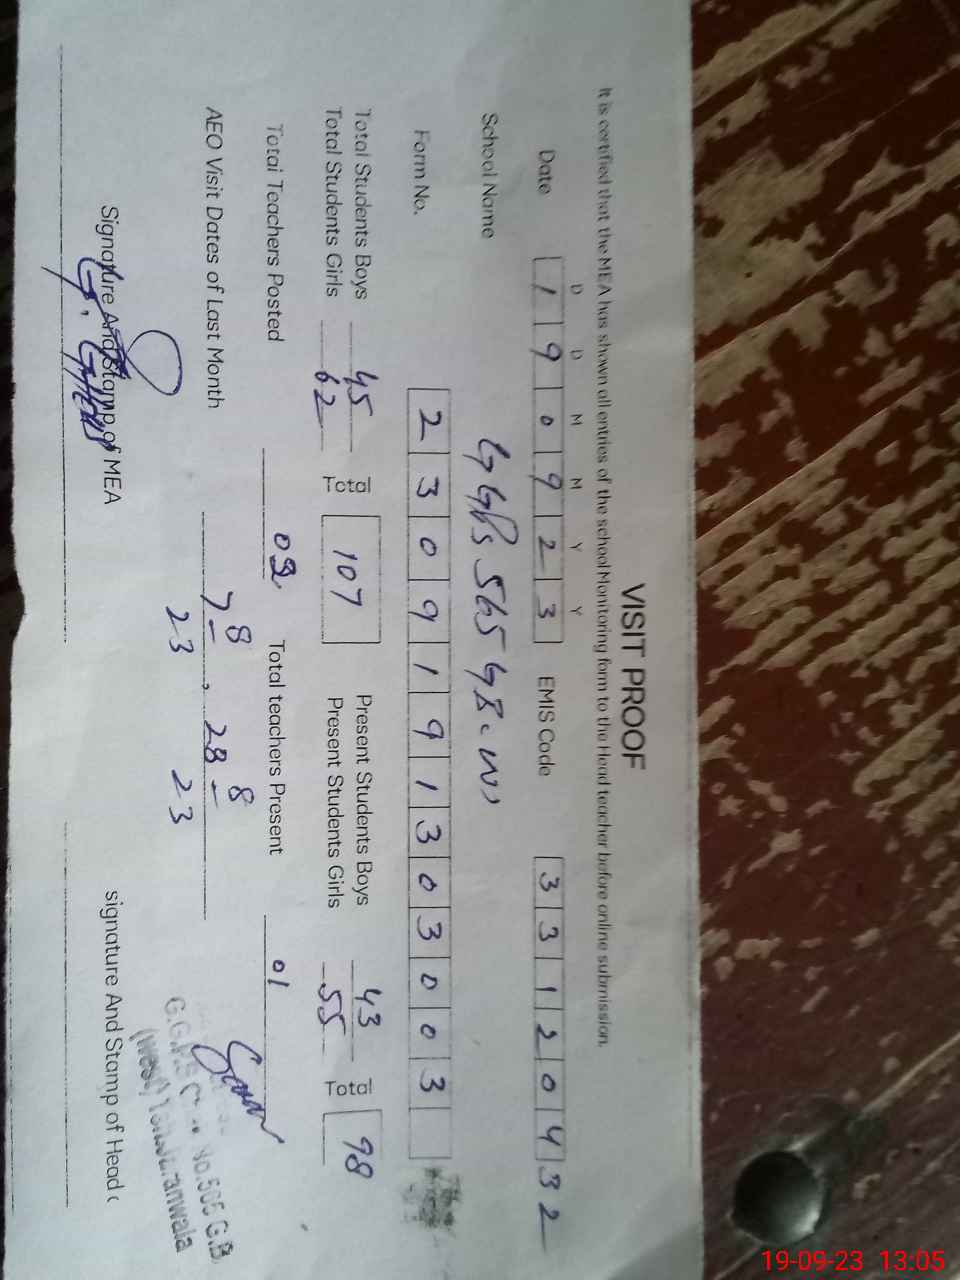 VISIT PROOF
It is certified that the MEA has shown all entries of the school Monitoring form to the Head teacher before online submission.
D D M M Y Y
Date 1 9 0 9 2 3 EMIS Code 3 3 1 2 0 4 3 2
School Name GGPS 565 GB. W
Form No. 2 3 0 9 1 9 1 3 0 3 0 0 3
Total Students Boys 45 Total 107 Present Students Boys 43 Total 98
Total Students Girls 62 Present Students Girls 55
Total Teachers Posted 02 Total teachers Present 01
AEO Visit Dates of Last Month 7-8-23, 28-8-23
No.565 G.B
(west)
Signature And Stamp of MEA signature And Stamp of Head
19-09-23 13:05